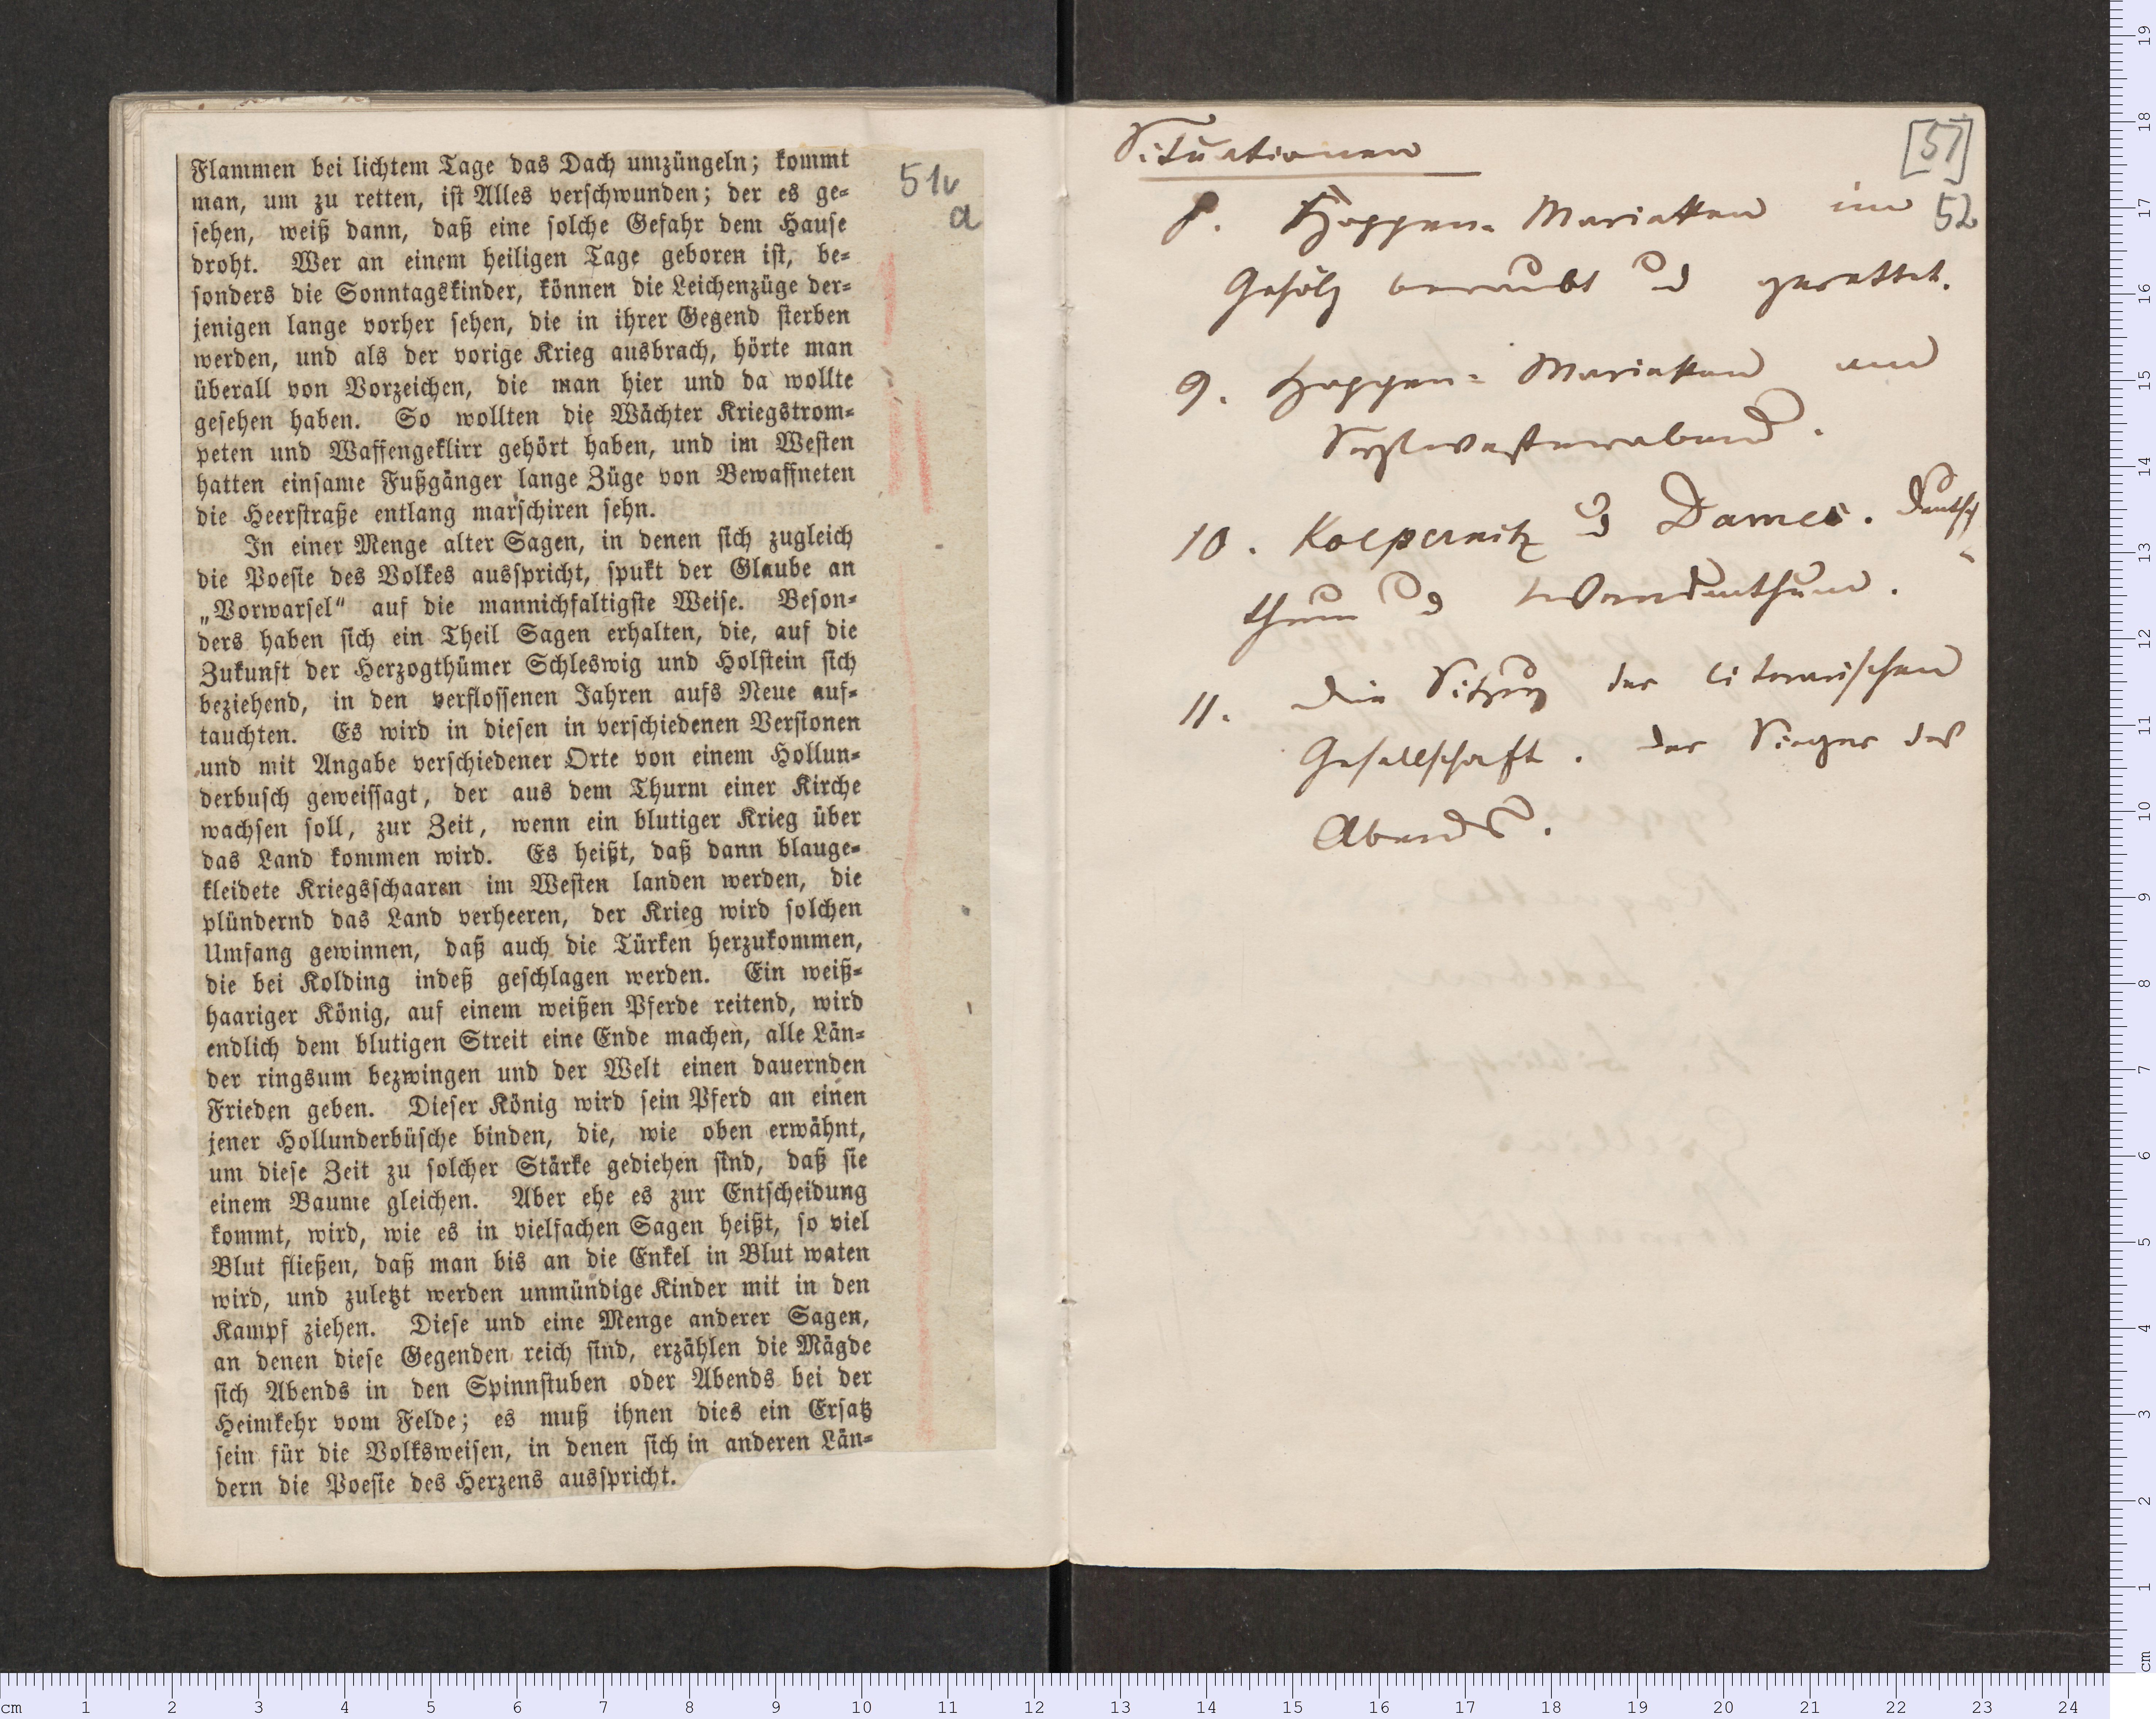 Flammen bei lichtem Tage das Dach umzüngeln; kommt
man, um zu retten, ist Alles verschwunden; der es ge-
sehen, weiß dann, daß eine solche Gefahr dem Hause
droht. Wer an einem heiligen Tage geboren ist, be-
sonders die Sonntagskinder, können die Leichenzüge der-
jenigen lange vorher sehen, die in ihrer Gegend sterben
werden, und als der vorige Krieg ausbrach, hörte man
überall von Vorzeichen, die man hier und da wollte
gesehen haben. So wollten die Wächter Kriegstrom-
peten und Waffengeklirr gehört haben, und im Westen
hatten einsame Fußgänger lange Züge von Bewaffneten
die Heerstraße entlang marschiren sehn.
In einer Menge alter Sagen, in denen sich zugleich
die Poesie des Volkes ausspricht, spukt der Glaube an
„Vorwarsel“ auf die mannichfaltigste Weise. Beson-
ders haben sich ein Theil Sagen erhalten, die, auf die
Zukunft der Herzogthümer Schleswig und Holstein sich
beziehend, in den verflossenen Jahren aufs Neue auf-
tauchten. Es wird in diesen in verschiedenen Versionen
und mit Angabe verschiedener Orte von einem Hollun-
derbusch geweissagt, der aus dem Thurm einer Kirche
wachsen soll, zur Zeit, wenn ein blutiger Krieg über
das Land kommen wird. Es heißt, daß dann blauge-
kleidete Kriegsschaaren im Westen landen werden, die
plündernd das Land verheeren, der Krieg wird solchen
Umfang gewinnen, daß auch die Türken herzukommen,
die bei Kolding indeß geschlagen werden. Ein weiß-
haariger König, auf einem weißen Pferde reitend, wird
endlich dem blutigen Streit eine Ende machen, alle Län-
der ringsum bezwingen und der Welt einen dauernden
Frieden geben. Dieser König wird sein Pferd an einen
jener Hollunderbüsche binden, die, wie oben erwähnt,
um diese Zeit zu solcher Stärke gediehen sind, daß sie
einem Baume gleichen. Aber ehe es zur Entscheidung
kommt, wird, wie es in vielfachen Sagen heißt, so viel
Blut fließen, daß man bis an die Enkel in Blut waten
wird, und zuletzt werden unmündige Kinder mit in den
Kampf ziehen. Diese und eine Menge anderer Sagen,
an denen diese Gegenden reich sind, erzählen die Mägde
sich Abends in den Spinnstuben oder Abends bei der
Heimkehr vom Felde; es muß ihnen dies ein Ersatz
sein für die Volksweisen, in denen sich in anderen Län-
dern die Poesie des Herzens ausspricht.
51v
a
Situationen
[51]
52
8. Hoppen-Marieken im
Gehölz beraubt und gerettet.
9. Hoppen-Marieken am
Sylvesterabend.
10. Koepernitz und Dames. Deutsch-
thum und Wendenthum.
11. Die Sitzung der literarischen
Gesellschaft. Der Sieger des
Abends.